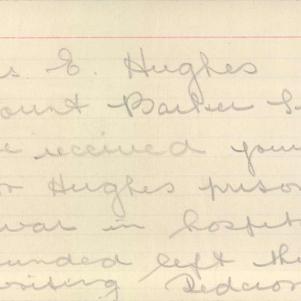 s E. Hughes
ount Barker S
e received your
or Hughes prison
war in hospit
unded left th
writing Redcro